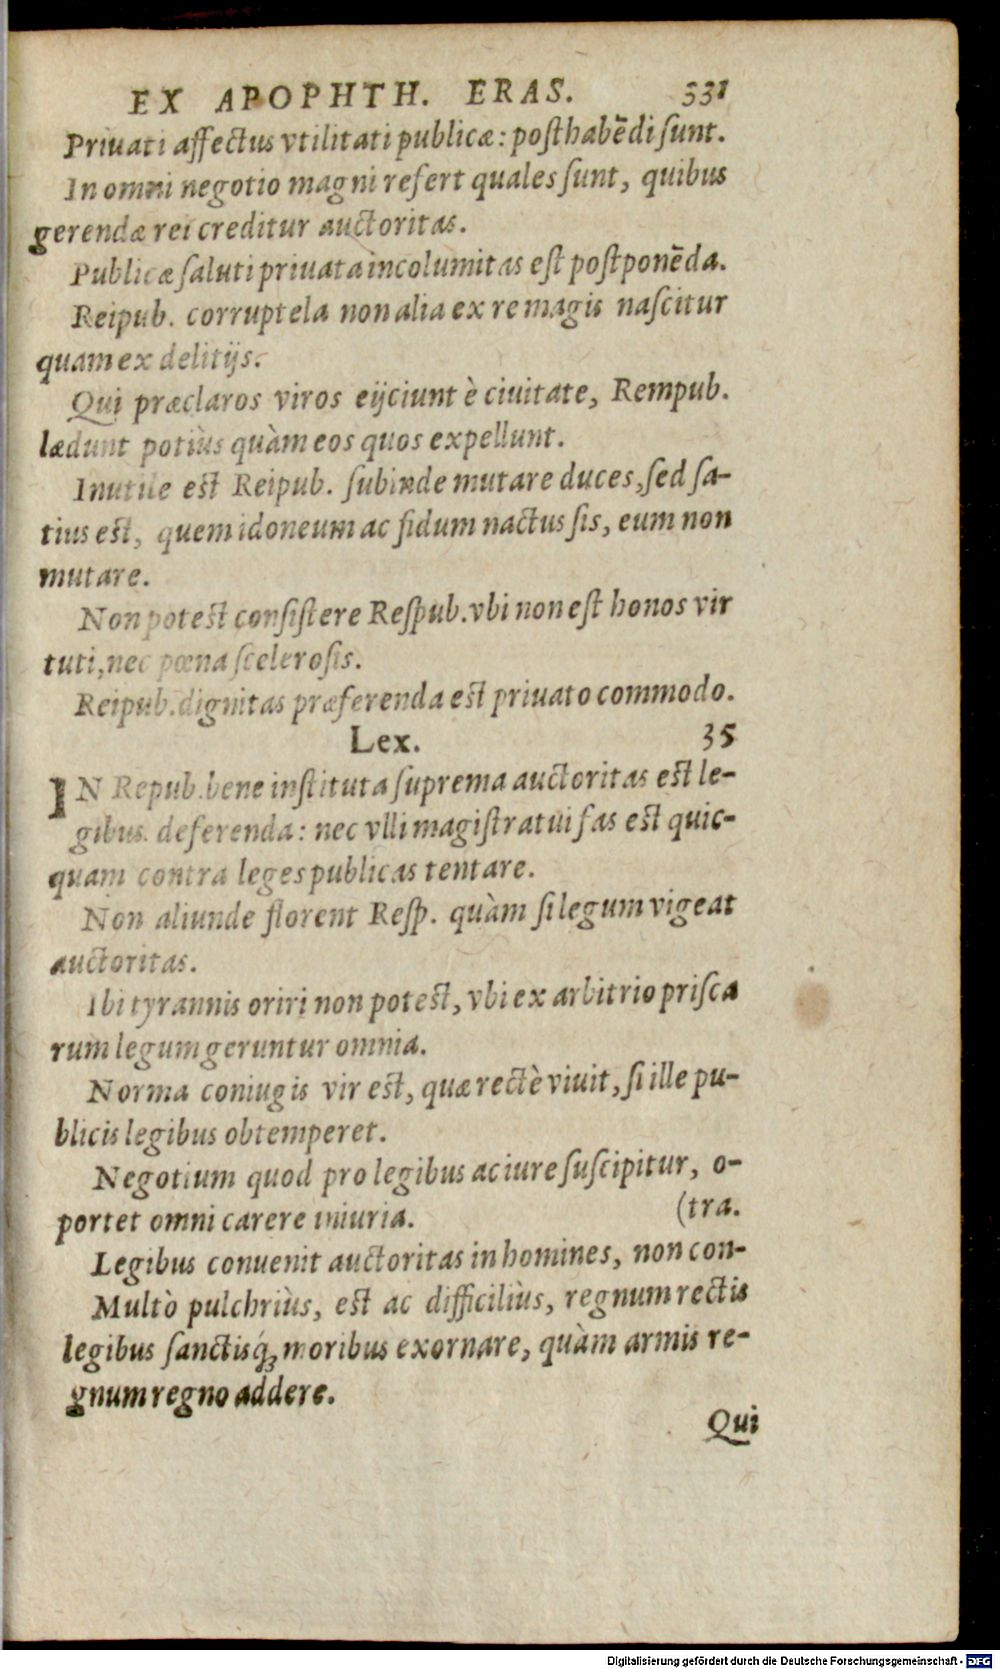 EX APOPHTH. ERAS. 331
Priuati affectus vtilitati publicæ: posthabēdi sunt.
In omni negotio magni refert quales sunt, quibus
gerendæ rei creditur auctoritas.
Publicæ saluti priuata incolumitas est postponēda.
Reipub. corruptela non alia ex re magis nascitur
quam ex delitijs.
Qui præclaros viros eijciunt è ciuitate, Rempub.
lædunt potiùs quàm eos quos expellunt.
Inutile est Reipub. subinde mutare duces, sed sa-
tius est, quem idoneum ac fidum nactus sis, eum non
mutare.
Non potest consistere Respub. vbi non est honos vir
tuti, nec pœna scelerosis.
Reipub. dignitas præferenda est priuato commodo.
Lex. 35
IN Repub. bene instituta suprema auctoritas est le-
gibus. deferenda: nec vlli magistratui fas est quic-
quam contra leges publicas tentare.
Non aliunde florent Resp. quàm si legum vigeat
auctoritas.
Ibi tyrannis oriri non potest, vbi ex arbitrio prisca
rum legum geruntur omnia.
Norma coniugis vir est, quæ rectè viuit, si ille pu-
blicis legibus obtemperet.
Negotium quod pro legibus ac iure suscipitur, o-
portet omni carere iniuria. (tra.
Legibus conuenit auctoritas in homines, non con-
Multò pulchriùs, est ac difficiliùs, regnum rectis
legibus sanctisq́; moribus exornare, quàm armis re-
gnum regno addere.
Qui
Digitalisierung gefördert durch die Deutsche Forschungsgemeinschaft - DFG